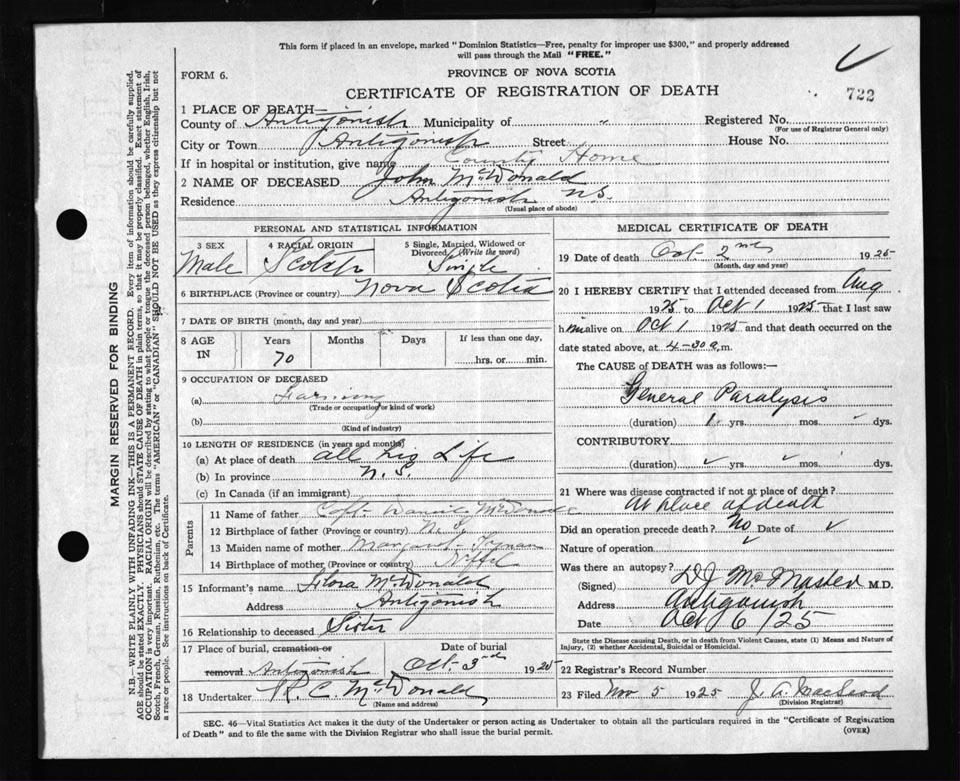 This form if placed in an envelope, marked "Dominion Statistics—Free, penalty for improper use $300," and properly addressed
will pass through the Mail "FREE."
FORM 6.
PROVINCE OF NOVA SCOTIA
CERTIFICATE OF REGISTRATION OF DEATH
722
1 PLACE OF DEATH—
County of Antigonish Municipality of " Registered No.
(For use of Registrar General only)
City or Town Antigonish Street House No.
If in hospital or institution, give name County Home
2 NAME OF DECEASED John McDonald
Residence Antigonish N.S.
(Usual place of abode)
PERSONAL AND STATISTICAL INFORMATION
3 SEX Male
4 RACIAL ORIGIN Scotch
5 Single, Married, Widowed or
Divorced (Write the word)
Single
6 BIRTHPLACE (Province or country) Nova Scotia
7 DATE OF BIRTH (month, day and year)
8 AGE IN
Years Months Days If less than one day,
70 hrs. or min.
9 OCCUPATION OF DECEASED
(a) Farming
(Trade or occupation or kind of work)
(b)
(Kind of industry)
10 LENGTH OF RESIDENCE (in years and months)
(a) At place of death all his Life
(b) In province N.S.
(c) In Canada (if an immigrant)
Parents
11 Name of father Capt Daniel McDonald
12 Birthplace of father (Province or country) N.S.
13 Maiden name of mother Margaret
14 Birthplace of mother (Province or country) Nfld
15 Informant's name Flora McDonald
Address Antigonish
16 Relationship to deceased Sister
17 Place of burial, cremation or Date of burial
removal Antigonish Oct 3rd 1925
18 Undertaker R. C. McDonald
(Name and address)
MEDICAL CERTIFICATE OF DEATH
19 Date of death Oct 2nd 1925
(Month, day and year)
20 I HEREBY CERTIFY that I attended deceased from Aug
1925 to Oct 1 1925 that I last saw
him alive on Oct 1 1925 and that death occurred on
date stated above, at 4-30 a.m.
The CAUSE of DEATH was as follows:—
General Paralysis
(duration) 1 yrs. mos. dys.
CONTRIBUTORY
(duration) yrs. mos. dys.
21 Where was disease contracted if not at place of death?
At place of death
Did an operation precede death? No Date of
Nature of operation
Was there an autopsy?
(Signed) D J McMaster M.D.
Address Antigonish
Date Oct 6/25
State the Disease causing Death, or in death from Violent Causes, state (1) Means and Nature of
Injury, (2) whether Accidental, Suicidal or Homicidal.
22 Registrar's Record Number
23 Filed Nov 5 1925 J. A. MacLeod
(Division Registrar)
SEC. 46—Vital Statistics Act makes it the duty of the Undertaker or person acting as Undertaker to obtain all the particulars required in the "Certificate of Registration
of Death" and to file the same with the Division Registrar who shall issue the burial permit.
(OVER)
MARGIN RESERVED FOR BINDING
N.B.—WRITE PLAINLY WITH UNFADING INK—THIS IS A PERMANENT RECORD. Every item of information should be carefully supplied.
AGE should be stated EXACTLY. PHYSICIANS should STATE CAUSE OF DEATH in plain terms, so that it may be properly classified. Exact statement of
OCCUPATION is very important. RACIAL ORIGIN will be described by stating to what people or tongue the deceased person belonged, whether English, Irish,
Scotch, French, German, Russian, Ruthenian, etc. The terms "AMERICAN" or "CANADIAN" SHOULD NOT BE USED as they express citizenship but not
a race or people. See instructions on back of Certificate.